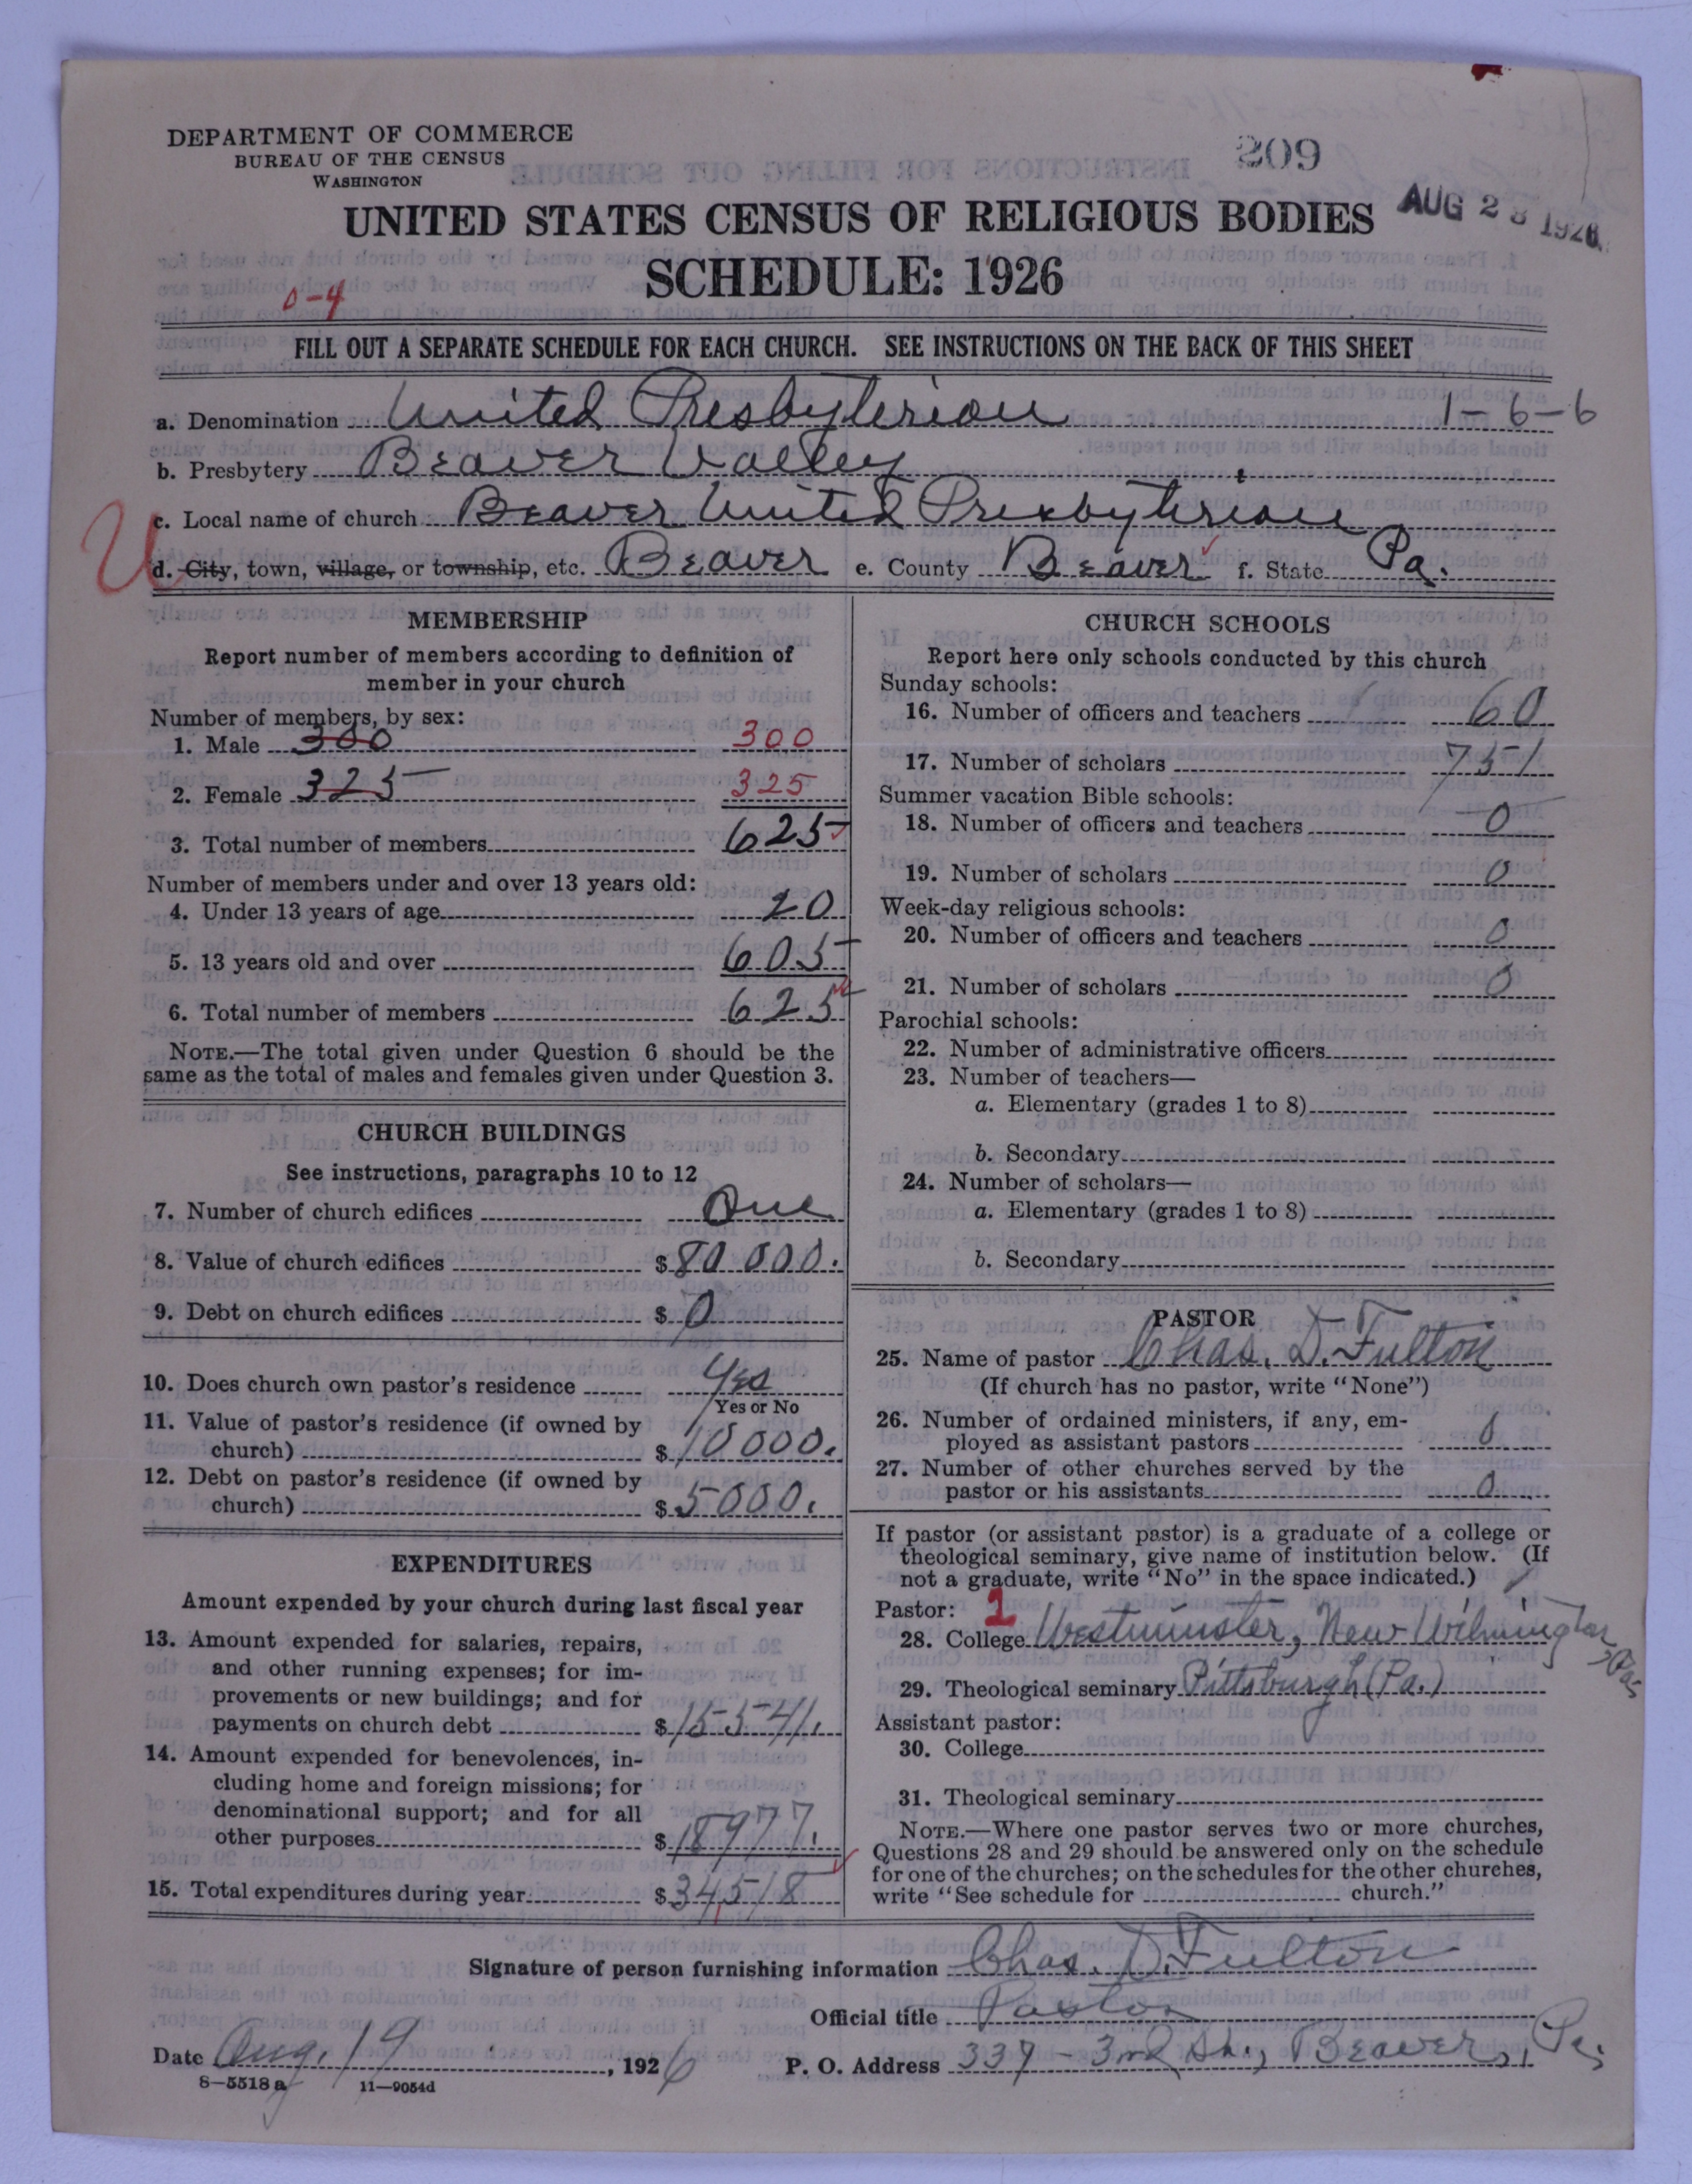 DEPARTMENT OF COMMERCE
BUREAU OF THE CENSUS
WASHINGTON
209
AUG 28 1926
UNITED STATES CENSUS OF RELIGIOUS BODIES
SCHEDULE: 1926
0-4
FILL OUT A SEPARATE SCHEDULE FOR EACH CHURCH. SEE INSTRUCTIONS ON THE BACK OF THIS SHEET
a. Denomination United Presbyterian 1-6-6
b. Presbytery Beaver Valley
c. Local name of church Beaver United Presbyterian
U
d. City, town, village, or township, etc. Beaver e. County Beaver f. State Pa.
MEMBERSHIP
Report number of members according to definition of
member in your church
Number of members, by sex:
1. Male 300 300
2. Female 325 325
3. Total number of members 625
Number of members under and over 13 years old:
4. Under 13 years of age 20
5. 13 years old and over 605
6. Total number of members 625
NOTE.—The total given under Question 6 should be the
same as the total of males and females given under Question 3.
CHURCH BUILDINGS
See instructions, paragraphs 10 to 12
7. Number of church edifices One
8. Value of church edifices $80 000.
9. Debt on church edifices $0
10. Does church own pastor's residence Yes
Yes or No
11. Value of pastor's residence (if owned by
church) $10 000.
12. Debt on pastor's residence (if owned by
church) $5000.
EXPENDITURES
Amount expended by your church during last fiscal year
13. Amount expended for salaries, repairs,
and other running expenses; for im-
provements or new buildings; and for
payments on church debt $15541.
14. Amount expended for benevolences, in-
cluding home and foreign missions; for
denominational support; and for all
other purposes $18977.
15. Total expenditures during year $34,518
CHURCH SCHOOLS
Report here only schools conducted by this church
Sunday schools:
16. Number of officers and teachers 60
17. Number of scholars 751
Summer vacation Bible schools:
18. Number of officers and teachers 0
19. Number of scholars 0
Week-day religious schools:
20. Number of officers and teachers 0
21. Number of scholars 0
Parochial schools:
22. Number of administrative officers
23. Number of teachers—
a. Elementary (grades 1 to 8)
b. Secondary
24. Number of scholars—
a. Elementary (grades 1 to 8)
b. Secondary
PASTOR
25. Name of pastor Chas. D. Fulton
(If church has no pastor, write "None")
26. Number of ordained ministers, if any, em-
ployed as assistant pastors 0
27. Number of other churches served by the
pastor or his assistants 0
If pastor (or assistant pastor) is a graduate of a college or
theological seminary, give name of institution below. (If
not a graduate, write "No" in the space indicated.)
Pastor: 1
28. College Westminster, New Wilmington, Pa.
29. Theological seminary Pittsburgh (Pa.)
Assistant pastor:
30. College
31. Theological seminary
NOTE.—Where one pastor serves two or more churches,
Questions 28 and 29 should be answered only on the schedule
for one of the churches; on the schedules for the other churches,
write "See schedule for church."
Signature of person furnishing information Chas. D. Fulton
Official title Pastor
Date Aug. 19, 1926 P. O. Address 339 - 3rd St., Beaver, Pa.
8—5518a 11—9054d